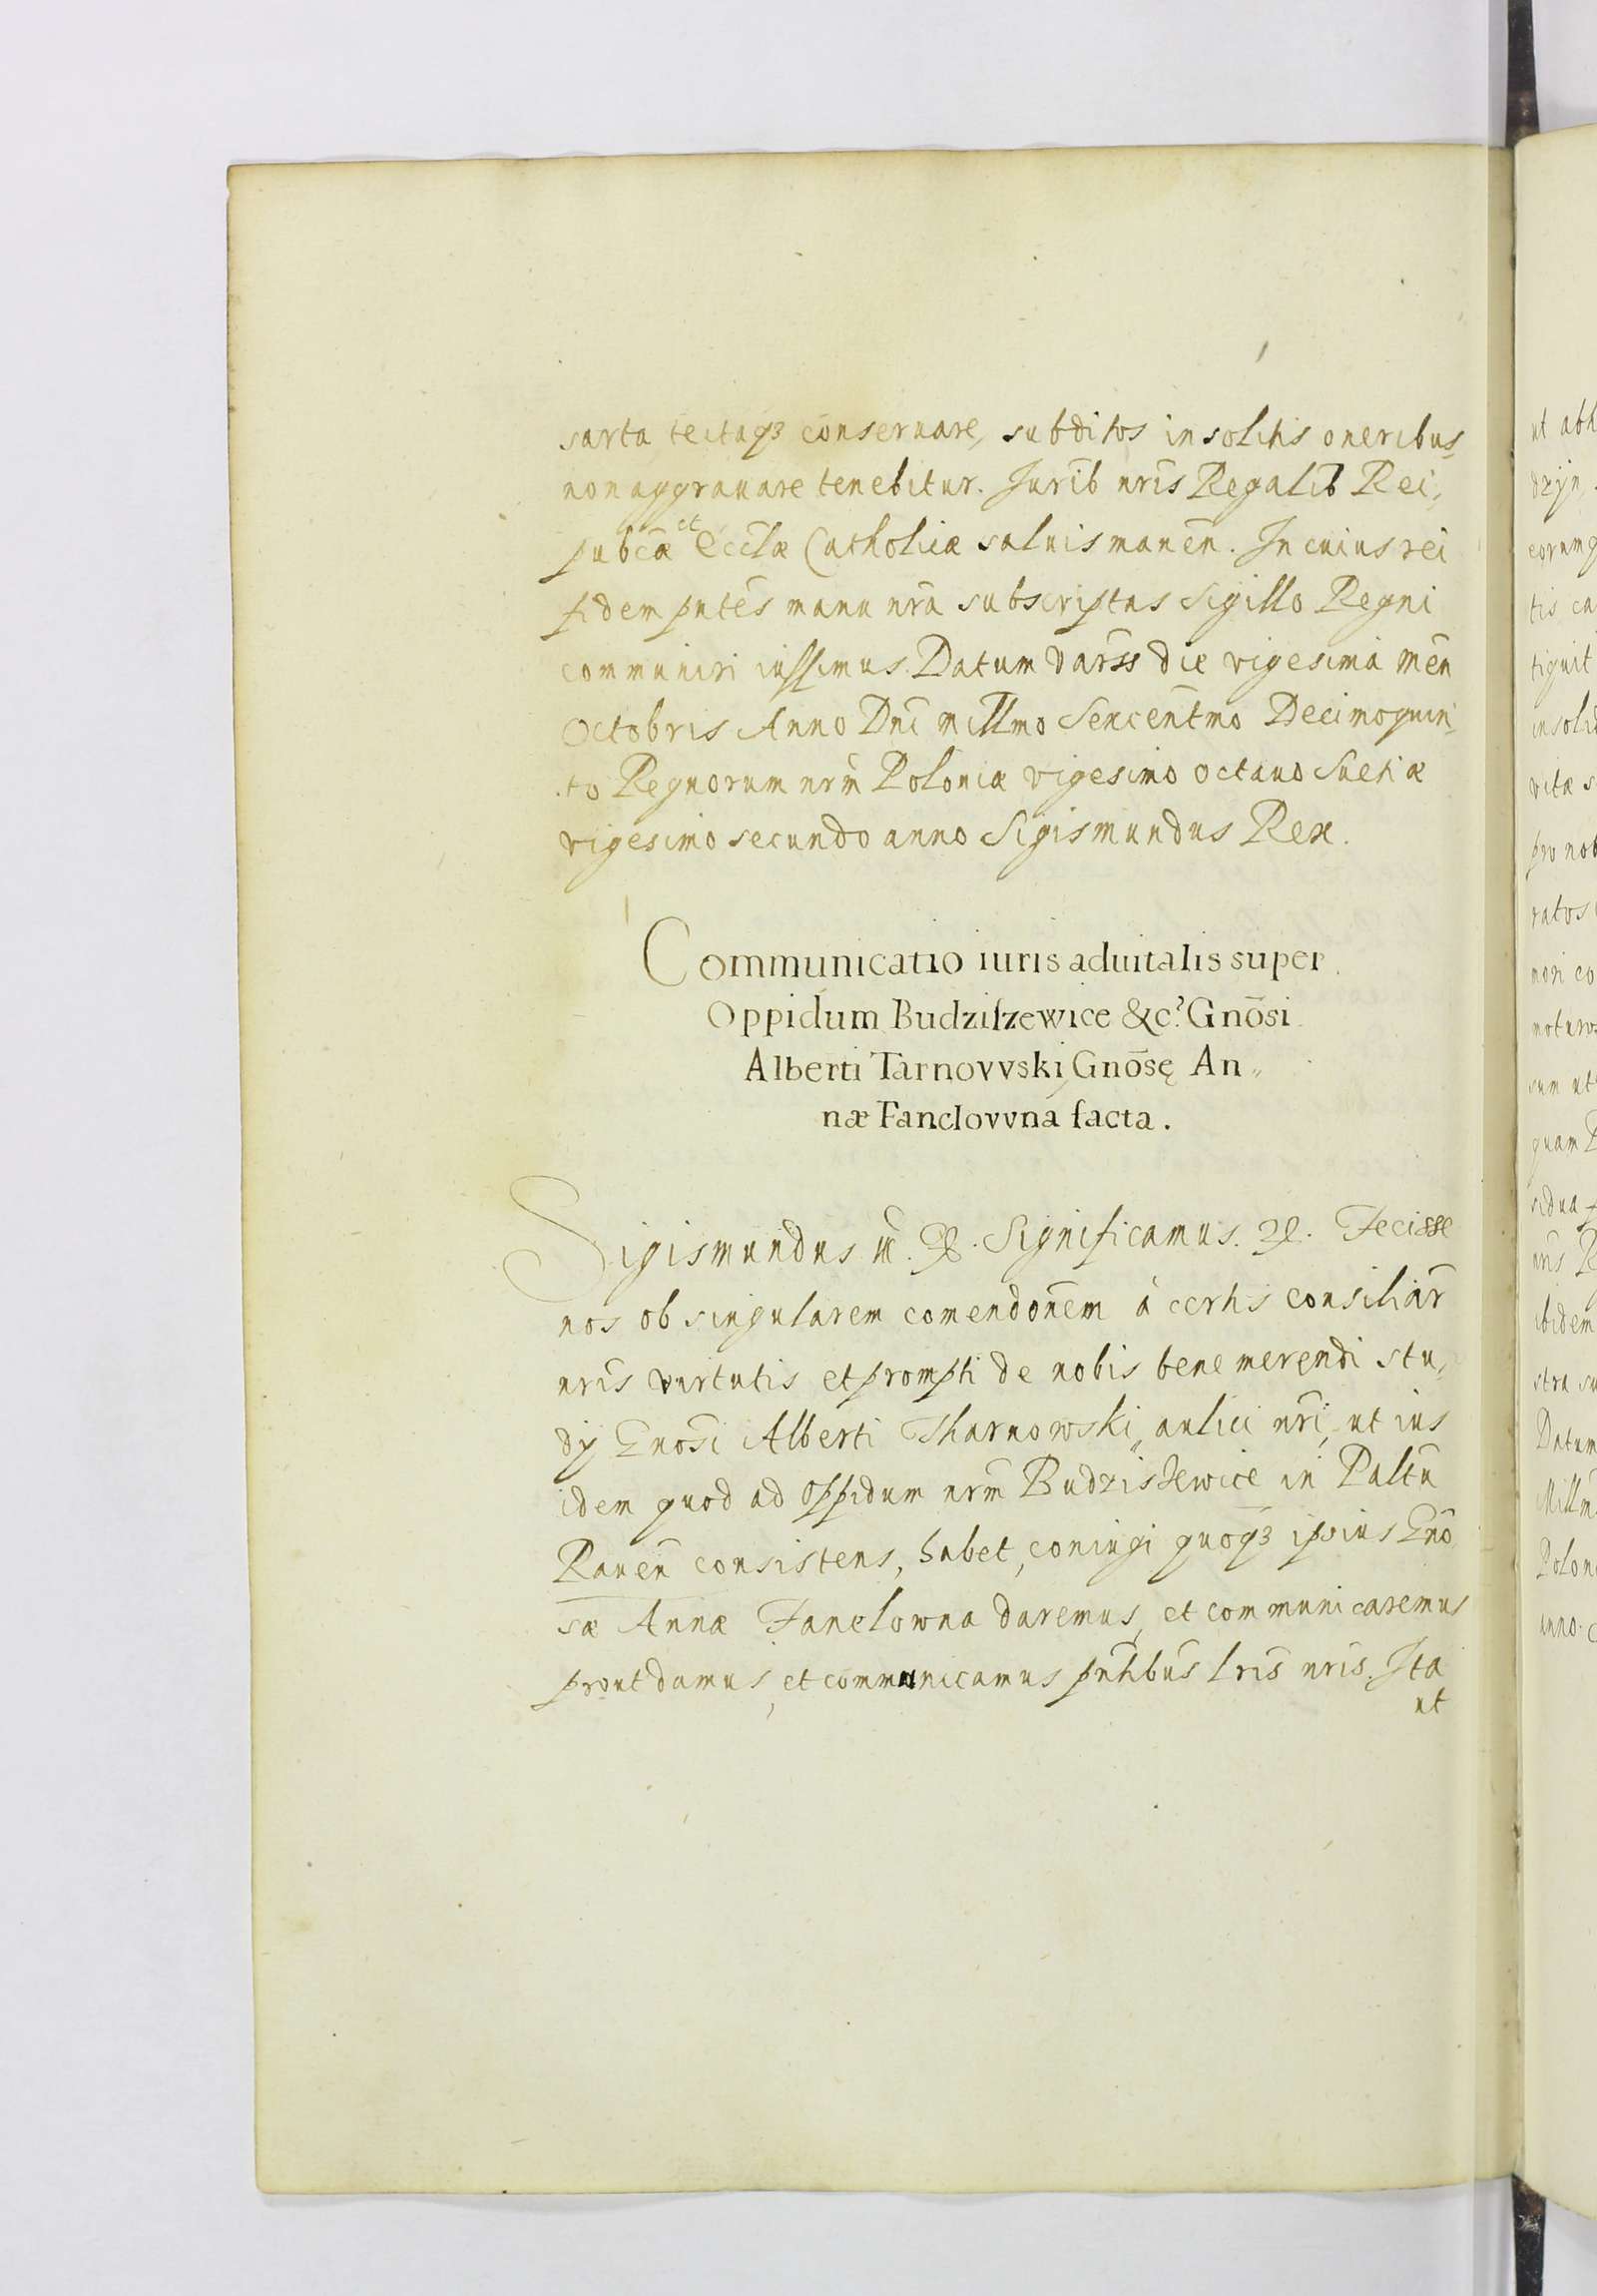 sarta tectaqꝫ conseruare, subditos insolitis oneribus
non aggrauare tenebitur. Jurib nr̃is Regalib Rei,
pubcæ et Eccl̃æ Catholicæ saluis manen̄. In cuius rei
fidem pñtes manu nr̃a subscriptas Sigillo Regni
communiri iussimus. Datum Varss die vigesima Men̄
Octobris Anno Dnĩ Millmo Sexcentmo Decimoquin,
to Regnorum nrm̃ Poloniæ vigesimo octauo Suetiæ
vigesimo secundo anno Sigismundus Rex.
Communicatio iuris aduitalis super
Oppidum Budziszewice &c. Gnōsi
Alberti Tarnovvski, Gnōsę An„
næ Fanclovvna facta.
Sigismundus III. Significamus. Fecisse
nos ob singularem comendonem à certis consiliar̃
nr̃is virtutis et prompti de nobis bene merendi stu,
dij Gnosi Alberti Tharnowski, aulici nr̃i, ut ius
idem quod ad Oppidum nrm̃ Budziszewice in Paltu
Rauen̄ consistens, habet, coniugi quoqꝫ ipsius Gno
sæ Annæ Fanclowna daremus, et communicaremus
prout damus, et communicamus pñtibus lris nris. Ita
ut
ut
tis
vitæ
pro
ratos
sum
quam
ibidem
stra
Datum
Millm
Polon
anno.